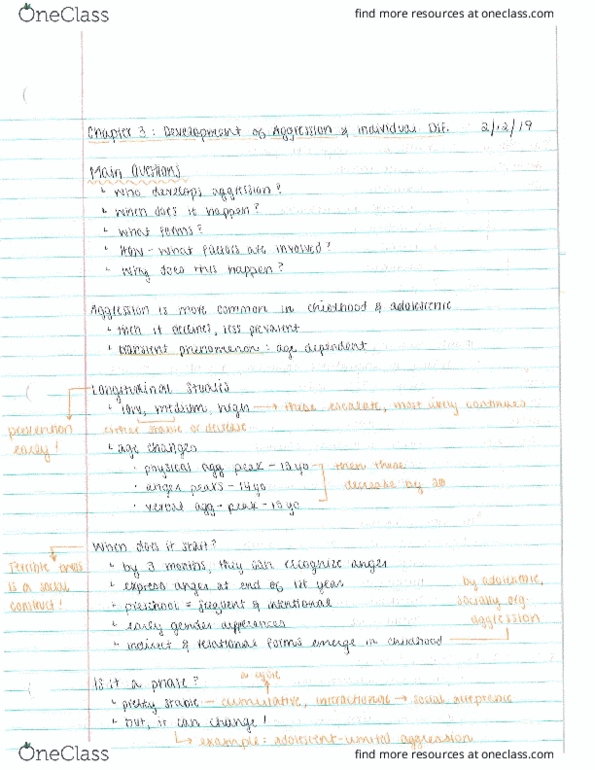 OneClass
find more resources at oneclass.com
Chapter 3 : Development of Aggression & individual Dif. 2/12/19
Main Questions
who develops aggression?
when does it happen?
what forms?
HOW - what factors are involved?
why does this happen?
Aggression is more common in childhood & adolescence
then it declines, less prevalent
transient phenomenon : age dependent
Longitudinal Studies
low, medium, high → these escalate, most likely continues
prevention early!
either stable or decrease
age changes
physical agg peak - 13 yo
anger peaks - 14 yo
verbal agg - peak - 15 yo
then these decrease by 20
When does it start?
Terrible twos is a social construct!
by 3 months, they can recognize anger
express anger at end of 1st year
preschool = frequent & intentional
early gender differences
indirect & relational forms emerge in childhood
by adolescence, socially org. aggression
Is it a phase?
a cycle
pretty stable - cumulative, → social
But, it can change!
→ example : adolescent-limited aggression
OneClass
find more resources at oneclass.com